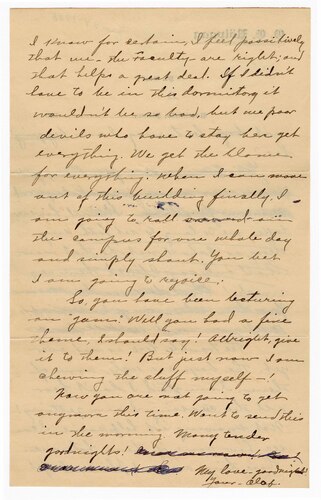 I know for certain, I feel possitively
that we - the Faculty are right; and
that helps a great deal. If I didn't
have to be in this dormitory it
wouldn't be so bad, but we poor
devils who have to stay here get
everything. We get the blame
for everything. When I can move
out of this building finally, I
am going to roll on
the campus for one whole day
and simply shout. You bet
I am going to rejoice.
So, you have been lecturing
on "Jam." Well you had a fine
theme, I should say! Allright, give
it to them! But just now I am
chewing the stuff myself -
Now you are not going to get
anymore this time. Want to send this
in the morning Many tender
goodnights!
My love - goodnight!
Your -